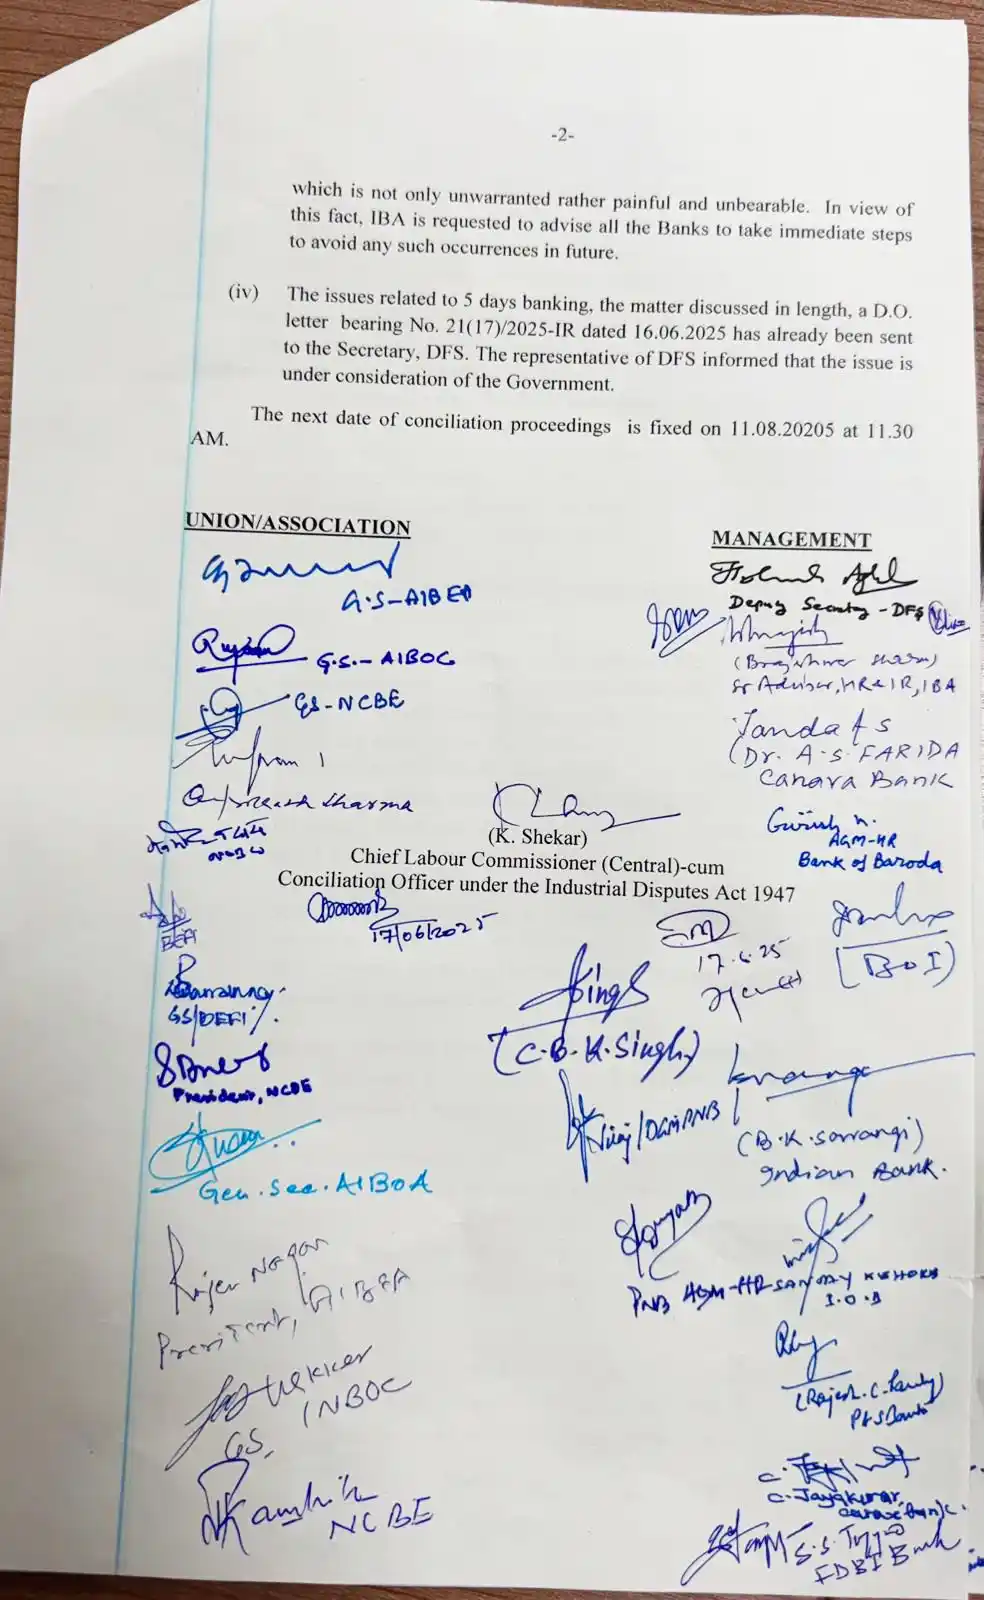 -2-
which is not only unwarranted rather painful and unbearable. In view of
this fact, IBA is requested to advise all the Banks to take immediate steps
to avoid any such occurrences in future.
(iv) The issues related to 5 days banking, the matter discussed in length, a D.O.
letter bearing No. 21(17)/2025-IR dated 16.06.2025 has already been sent
to the Secretary, DFS. The representative of DFS informed that the issue is
under consideration of the Government.
The next date of conciliation proceedings is fixed on 11.08.20205 at 11.30
AM.
UNION/ASSOCIATION
G.S-AIBEA
G.S.- AIBOC
GS-NCBE
Sharma
BEFI
GS/
President, NCBE
Gen. Sec. AIBOA
Rajen Nagar
President, AIBEA
INBOC
GS,
NCBE
MANAGEMENT
Deputy Secretary - DFS
Sr Adviser, HR & IR, IBA
(Dr. A. S. FARIDA
Canara Bank
Girish
AGM-HR
Bank of Baroda
(K. Shekar)
Chief Labour Commissioner (Central)-cum
Conciliation Officer under the Industrial Disputes Act 1947
17/06/2025
17.6.25
(BOI)
Singh
(C.B.K.Singh)
/DGM PNB
(B.K.Sarrangi)
Indian Bank.
PNB AGM-HR
SANJAY KISHORE
I.O.B
(Rajesh.C.
P&SBank
C. Jayakumar,
S.S.
IDBI Bank